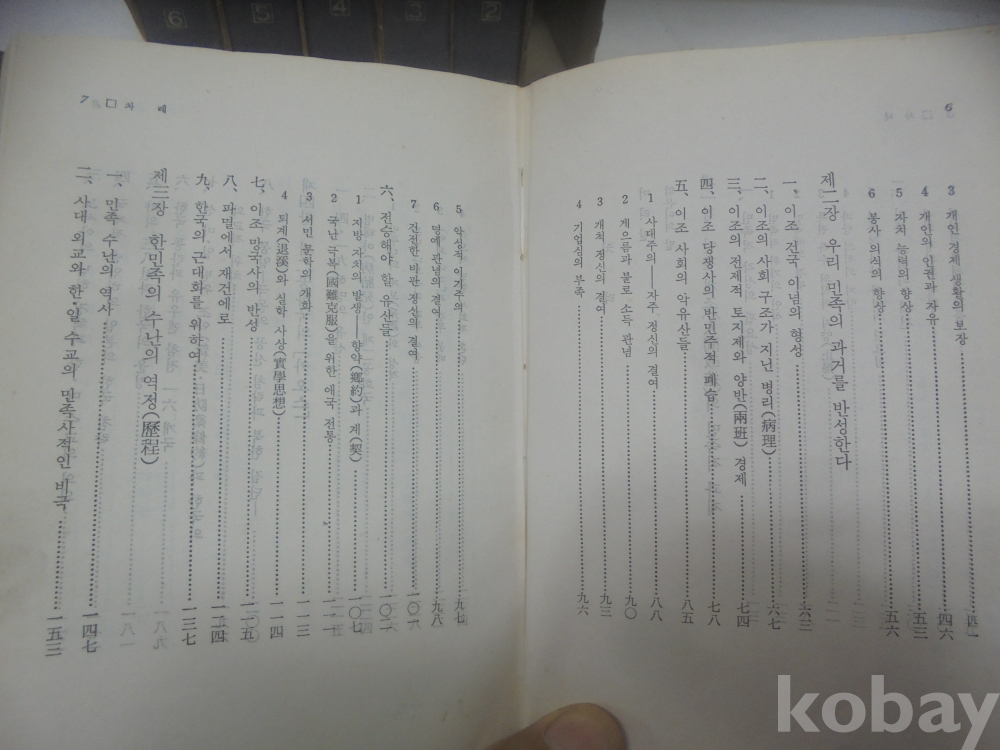 6 5 4 3 2
6
3 개인 경제 생활의 보장 四一
4 개인의 인권과 자유 四六
5 자치 능력의 향상 五三
6 봉사 의식의 향상 五六
제二장 우리 민족의 과거를 반성한다
一、 이조 전국 이념의 형상 六三
二、 이조의 사회 구조가 지닌 병리(病理) 六七
三、 이조의 전제적 토지제와 양반(兩班) 경제 七四
四、 이조 당쟁사의 반민주적 폐습 七八
五、 이조 사회의 악유산들 八五
1 사대주의──자주 정신의 결여 八八
2 게으름과 불로 소득 관념 九〇
3 개척 정신의 결여 九三
4 기업성의 부족 九六
7 □ 차 례
5 악성적 이기주의 九七
6 명예 관념의 결여 九八
7 건전한 비판 정신의 결여 一〇一
六、 전승해야 할 유산들 一〇二
1 지방 자치의 발생──향약(鄕約)과 계(契) 一〇七
2 국난 극복(國難克服)을 위한 애국 전통
3 서민 문학의 개화 一一三
4 퇴계(退溪)와 실학 사상(實學思想) 一一四
七、 이조 망국사의 반성
八、 파멸에서 재건에로 一二四
九、 한국의 근대화를 위하여 一三七
제三장 한민족의 수난의 역정(歷程)
一、 민족 수난의 역사 一四七
二、 사대 외교와 한·일 수교의 민족사적인 비극 一五三
kobay